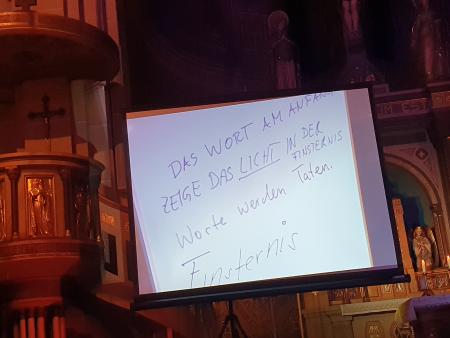 DAS WORT AM ANFANG
ZEIGE DAS LICHT IN DER
FINSTERNIS
Worte werden Taten.
Finsternis